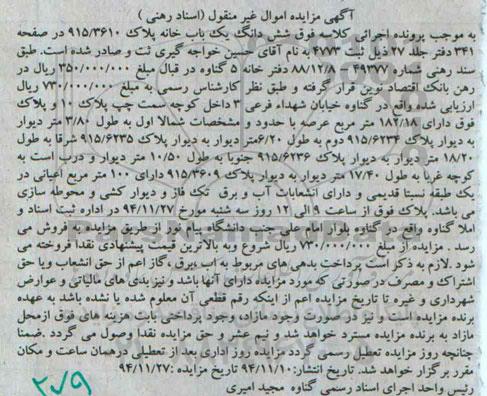 آگهی مزایده اموال غیر منقول (اسناد رهنی)
به موجب پرونده اجرائی کلاسه فوق شش دانگ یک باب خانه پلاک ۹۱۵/۳۶۱۰ در صفحه
۳۴۱ دفتر جلد ۲۷ ذیل ثبت ۴۷۷۳ به نام آقای حسین خواجه گیری ثبت و صادر شده است. طبق
سند رهنی شماره ۴۹۹۷۷- ۸۸/۱۲/۸ دفتر خانه ۵ گناوه در قبال مبلغ ۳۵۰/۰۰۰/۰۰۰ ریال در
رهن بانک اقتصاد نوین قرار گرفته و طبق نظر کارشناس رسمی به مبلغ ۷۳۰/۰۰۰/۰۰۰ ریال
ارزیابی شده واقع در گناوه خیابان شهداء فرعی ۳ داخل کوچه سمت چپ پلاک ۱۰ و پلاک
فوق دارای ۱۸۲/۱۸ متر مربع عرصه با حدود و مشخصات شمالا اول به طول ۳/۸۰ متر دیوار
به دیوار پلاک ۹۱۵/۶۲۳۴ دوم به طول ۶/۲۰متر دیوار به دیوار پلاک ۹۱۵/۶۲۳۵ شرقا به طول
۱۸/۲۰ متر دیوار به دیوار پلاک ۹۱۵/۶۲۳۶ جنوبا به طول ۱۰/۵۰ متر دیوار و درب است به
کوچه غربا به طول ۱۷/۴۰ متر دیوار به دیوار پلاک ۹۱۵/۳۶۰۹ دارای ۱۰۰ متر مربع اعیانی در
یک طبقه نسبتا قدیمی و دارای انشعابات آب و برق تک فاز و دیوار کشی و محوطه سازی
می باشد. پلاک فوق از ساعت ۹ الی ۱۲ روز سه شنبه مورخ ۹۴/۱۱/۲۷ در اداره ثبت اسناد و
املا گناوه واقع در گناوه بلوار امام علی جنب دانشگاه پیام نور از طریق مزایده به فروش می
رسد . مزایده از مبلغ ۷۳۰/۰۰۰/۰۰۰ ریال شروع وبه بالاترین قیمت پیشنهادی نقدا فروخته می
شود .لازم به ذکر است پرداخت بدهی های مربوط به اب ،برق ،گاز اعم از حق انشعاب ویا حق
اشتراک و مصرف در صورتی که مورد مزایده دارای آنها باشد و نیز بدی های مالیاتی و عوارض
شهرداری و غیره تا تاریخ مزایده اعم از اینکه رقم قطعی آن معلوم شده یا نشده باشد به عهده
برنده مزایده است و نیز در صورت وجود مازاد، وجوه پرداختی بابت هزینه های فوق ازمحل
مازاد به برنده مزایده مسترد خواهد شد و نیم عشر و حق مزایده نقدا وصول می گردد .ضمنا
چنانچه روز مزایده تعطیل رسمی گردد مزایده روز اداری بعد از تعطیلی درهمان ساعت و مکان
مقرر برگزار خواهد شد. تاریخ انتشار:۹۴/۱۱/۱۰ تاریخ مزایده :۹۴/۱۱/۲۷
رئیس واحد اجرای اسناد رسمی گناوه مجید امیری
۲۷۹